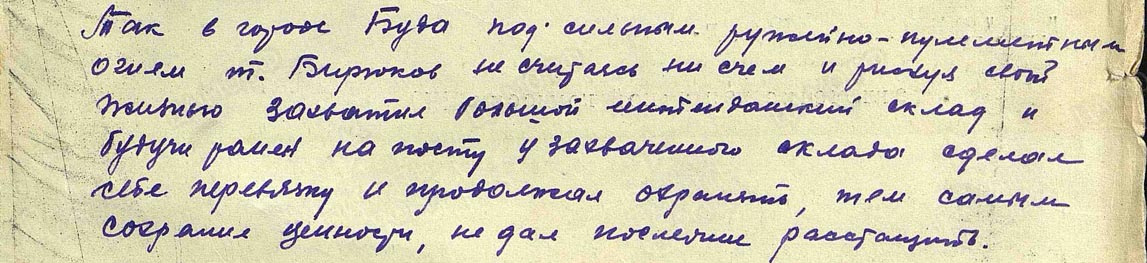 Так в городе Буда под сильным ружейно-пулеметным
огнем т. Бирюков не считаясь ни с чем и рискуя своей
жизнью захватил большой интендантский склад и
будучи ранен на посту у захваченного склада сделал
себе перевязку и продолжал охранять, тем самым
сохранил ценности, не дал последним расстащить.